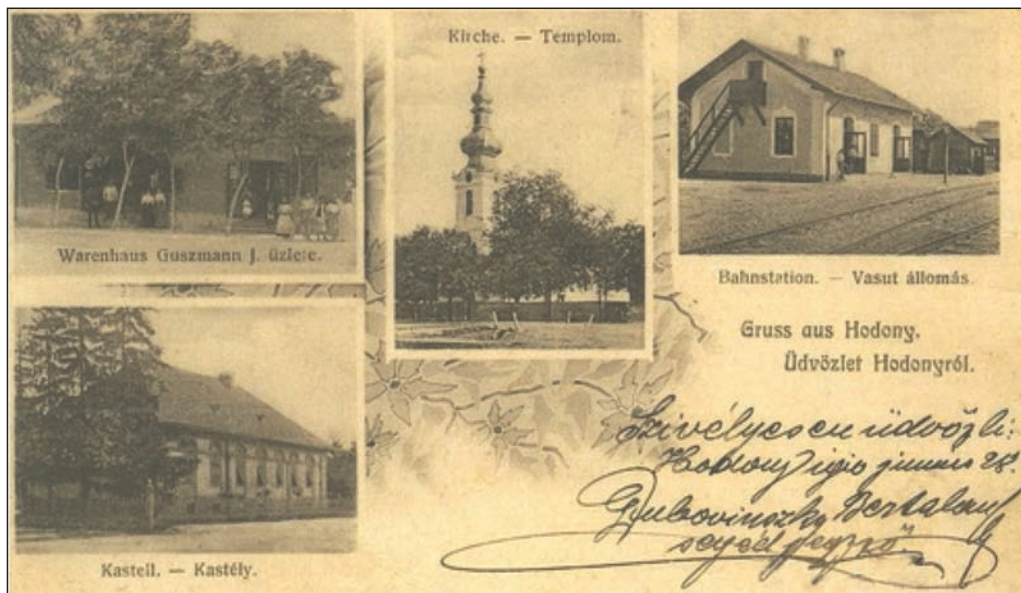 Kirche. — Templom.
Warenhaus Guszmann J. üzlete.
Bahnstation. — Vasut állomás.
Gruss aus Hodony.
Üdvözlet Hodonyról.
Kastell. — Kastély.
Szivélyesen üdvözli:
Hodony 1910 junius 28.
Dubovinszky Bertalan
segéd jegyző.